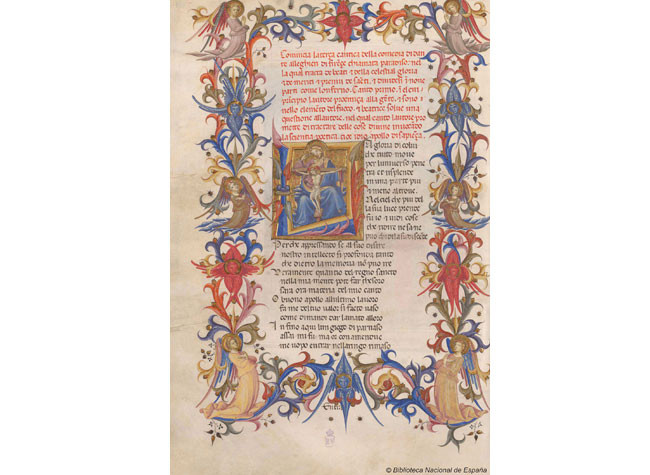 Comincia la terça cantica della comedia di dan
te alleghieri di firẽçe chiamata paradiso. nel
la qual tracta de beati & della celestial gloria
& de meriti & premii de sãcti, & dividesi ĩ nove
parti come lonferno. Canto primo,
lauctore
nello elemẽto del fuoco, & beatrice solve una
questione allauctore, nel qual canto lauctore pro
mette di tractare delle cose divine invocãdo
la scientia poetica, cioe
La gloria di colui
che tutto move
per luniverso pene
tra et risplende
in una parte piu
& meno altrove.
Nel ciel che piu del
la sua luce prende
fu io & vidi cose
che ridire ne sa ne
Perche appressando se al suo disire
nostro intellecto si profonda tanto
che dietro la memoria nõ puo ire
Veramente quantio del regno sancto
nella mia mente pote far thesoro
sara ora materia del mio canto
O buono apollo allultimo lavoro
fa me del tuo valor si facto vaso
come dimandi dar lamato alloro
In fino aqui lun giogo di parnaso
assai mi fu ma or con amendue
me uopo entrar nellaringo rimaso
© Biblioteca Nacional de España